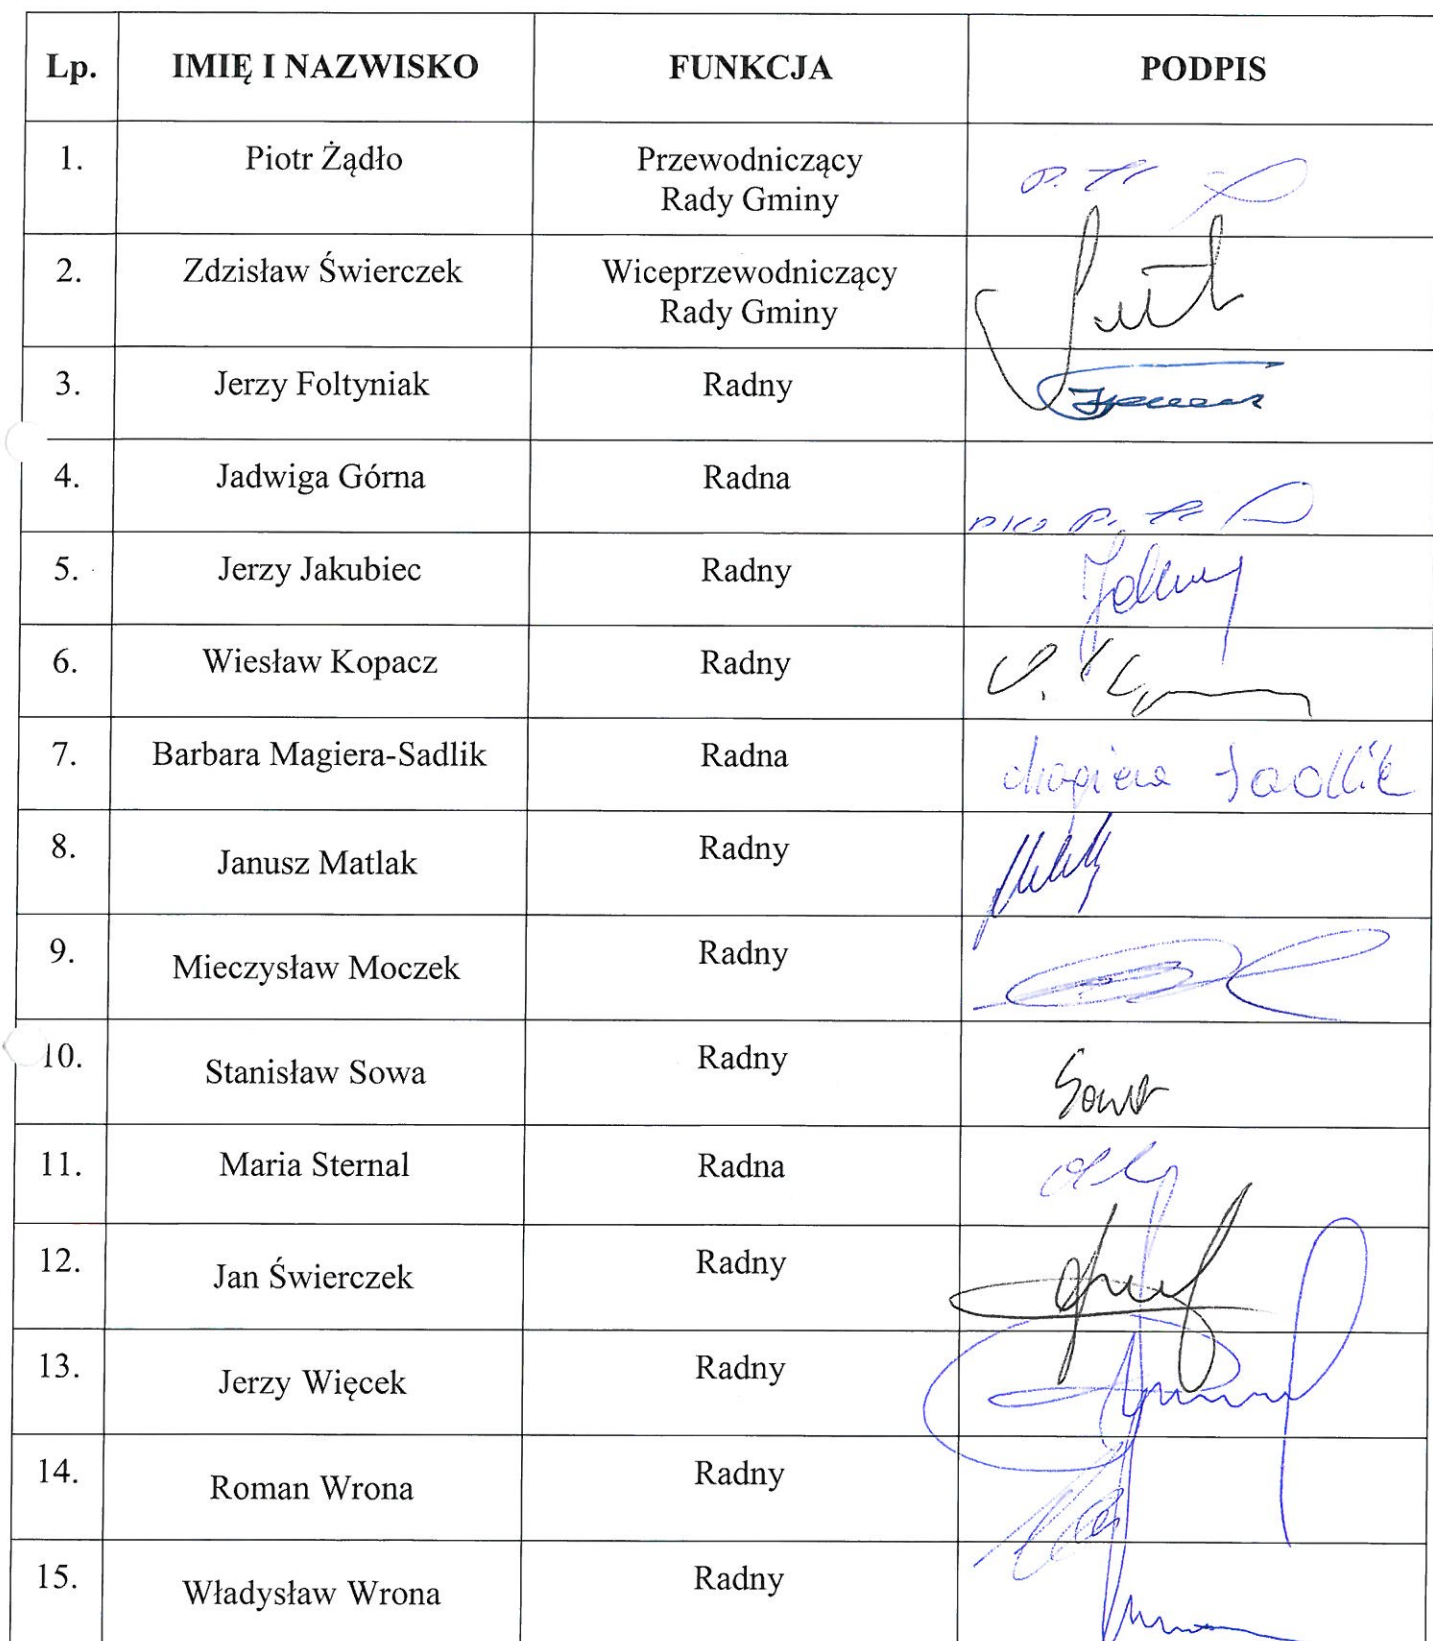 Lp. IMIĘ I NAZWISKO FUNKCJA PODPIS
1. Piotr Żądło Przewodniczący
Rady Gminy
2. Zdzisław Świerczek Wiceprzewodniczący
Rady Gminy
3. Jerzy Foltyniak Radny
4. Jadwiga Górna Radna
5. Jerzy Jakubiec Radny
6. Wiesław Kopacz Radny
7. Barbara Magiera-Sadlik Radna Magiera Sadlik
8. Janusz Matlak Radny
9. Mieczysław Moczek Radny
10. Stanisław Sowa Radny Sowa
11. Maria Sternal Radna
12. Jan Świerczek Radny
13. Jerzy Więcek Radny
14. Roman Wrona Radny
15. Władysław Wrona Radny